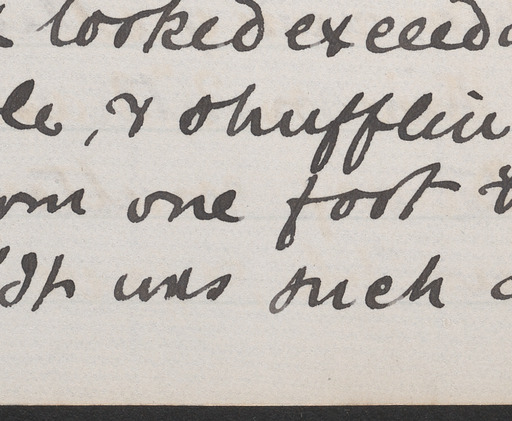 looked exceed
le, & shufflin
om one foot
"It was such a